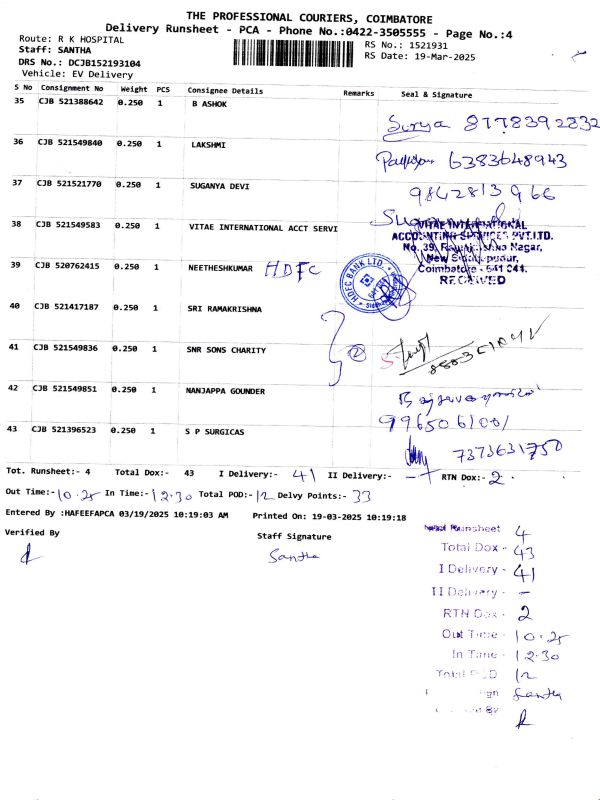 THE PROFESSIONAL COURIERS, COIMBATORE
Delivery Runsheet - PCA - Phone No.:0422-3505555 - Page No.:4
Route: R K HOSPITAL
RS No.: 1521931
Staff: SANTHA
RS Date: 19-Mar-2025
DRS No.: DCJB152193104
Vehicle: EV Delivery
S No Consignment No Weight PCS Consignee Details Remarks Seal & Signature
35 CJB 521388642 0.250 1 B ASHOK
Surya 8778392832
36 CJB 521549840 0.250 1 LAKSHMI
6383648943
37 CJB 521521770 0.250 1 SUGANYA DEVI
9842813966
38 CJB 521549583 0.250 1 VITAE INTERNATIONAL ACCT SERVI
VITAE INTERNATIONAL
ACCOUNTING SERVICES PVT.LTD.
No. 39, Ramakrishna Nagar,
New Siddhapudur,
Coimbatore - 641 044.
RECEIVED
39 CJB 520762415 0.250 1 NEETHESHKUMAR HDFC
HDFC BANK LTD.
40 CJB 521417187 0.250 1 SRI RAMAKRISHNA
41 CJB 521549836 0.250 1 SNR SONS CHARITY
2
42 CJB 521549851 0.250 1 NANJAPPA GOUNDER
9965061001
43 CJB 521396523 0.250 1 S P SURGICAS
7373631750
Tot. Runsheet:- 4 Total Dox:- 43 I Delivery:- 41 II Delivery:- - RTN Dox:- 2
Out Time:- 10.25 In Time:- 12.30 Total POD:- 12 Delvy Points:- 33
Entered By :HAFEEFAPCA 03/19/2025 10:19:03 AM Printed On: 19-03-2025 10:19:18
Verified By Staff Signature
Santha
Runsheet 4
Total Dox - 43
I Delivery - 41
II Delivery - -
RTN Dox - 2
Out Time - 10.25
In Time - 12.30
Total POD 12
Sign Santha
By